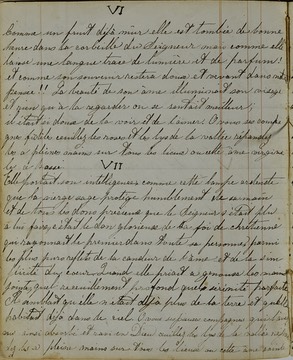 VI
Comme un fruit déjà mûr elle est tombée de bonne
heure dans la corbeille du Seigneur mais comme elle
laisse une longue trace de lumière et de parfum!
et comme son souvenir restera doux et vivant dans ma
pensée!! La beauté de son âme illuminait son visage
et rien qu'à la regarder on se sentait meilleur;
il était si doux de la voir et de l'aimer! O vous ses
cueillez les roses et les lys de la vallée répandez
les à pleines mains sur tous les lieux où cette âme virginale
a passé.
VII
Elle portait son intelligence comme cette lampe ardente
que la vierge sage protège humblement de sa main
et de tous les dons précieux que le Seigneur s'était plu
à lui faire, c'était le don glorieux de la foi de chrétienne
qui rayonnait le premier dans toute sa personne, parmi
les plus purs reflets de la candeur de l'âme et de la sim
plicité du cœur. Quand elle priait à genoux les mains
jointes, quel recueillement profond quelle sérénité parfaite
Il semblait que elle n'était déjà plus de la terre et qu'elle
habitait déjà dans le ciel. O vous ses
cueillez les de la vallée
les à pleines mains sur tous les lieux où cette âme